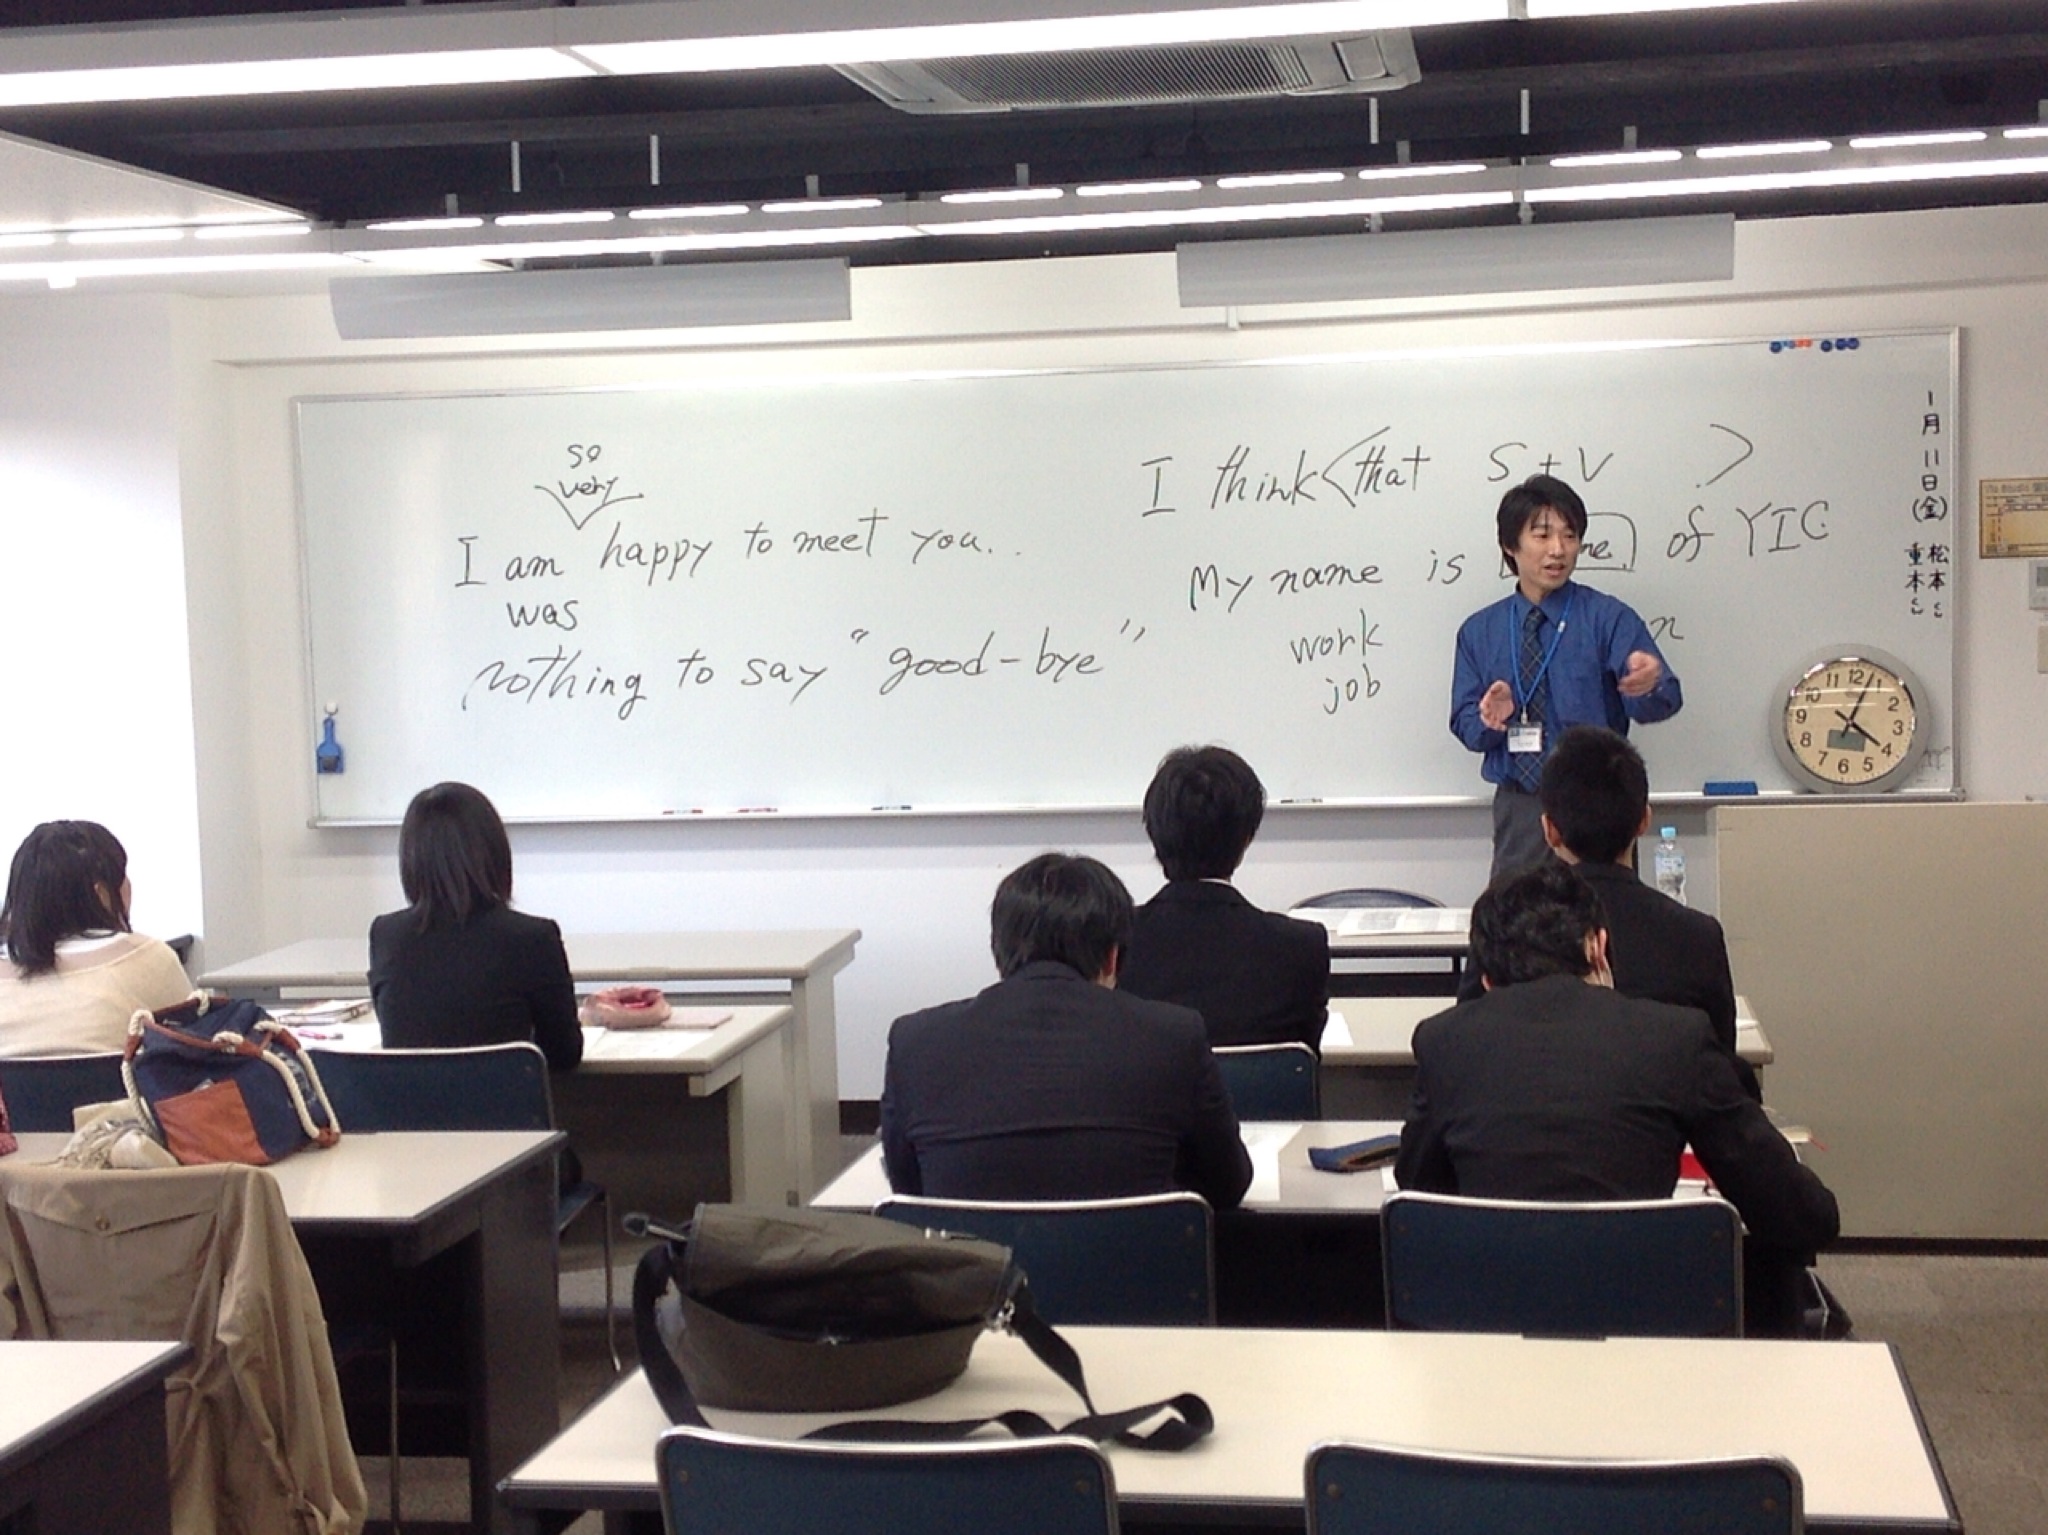 so
very
I am happy to meet you..
was
nothing to say "good-bye"
I think <that S + V >
My name is me. of YIC
work n
job
1月11日(金)
松本くん
重本くん
11 12 1
10 2
9 3
8 4
7 6 5